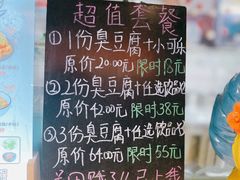 超值套餐
①1份臭豆腐+小可乐
原价20.00元 限时18元
②2份臭豆腐+任选饮品
原价42.00元 限时38元
③3份臭豆腐+任选饮品
原价64.00元 限时55元